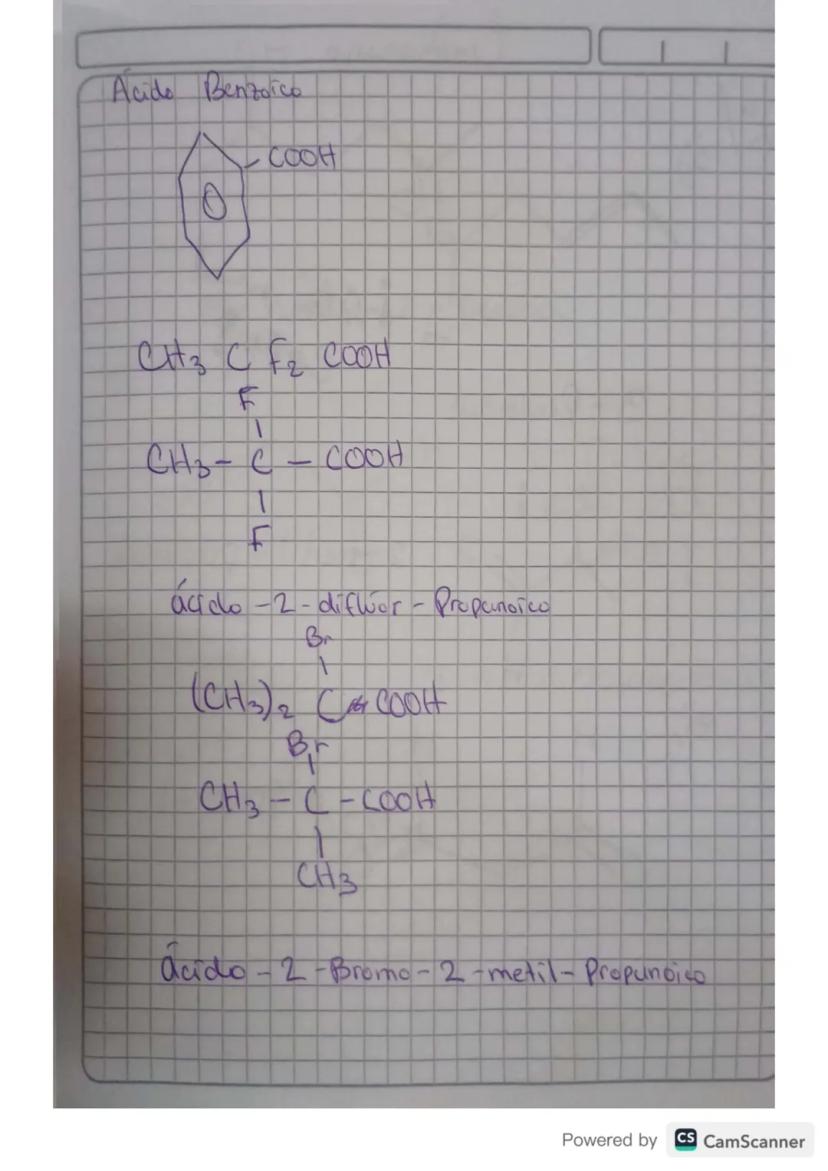 Ácido Benzoico
-COOH
CH3 C F2 COOH
F
CH3 - C - COOH
F
ácido - 2 - diflúor - Propanoico
Br
(CH3)2 C COOH
Br
CH3 - C - COOH
CH3
Ácido - 2 - Bromo - 2 - metil - Propanoico
Powered by CS CamScanner